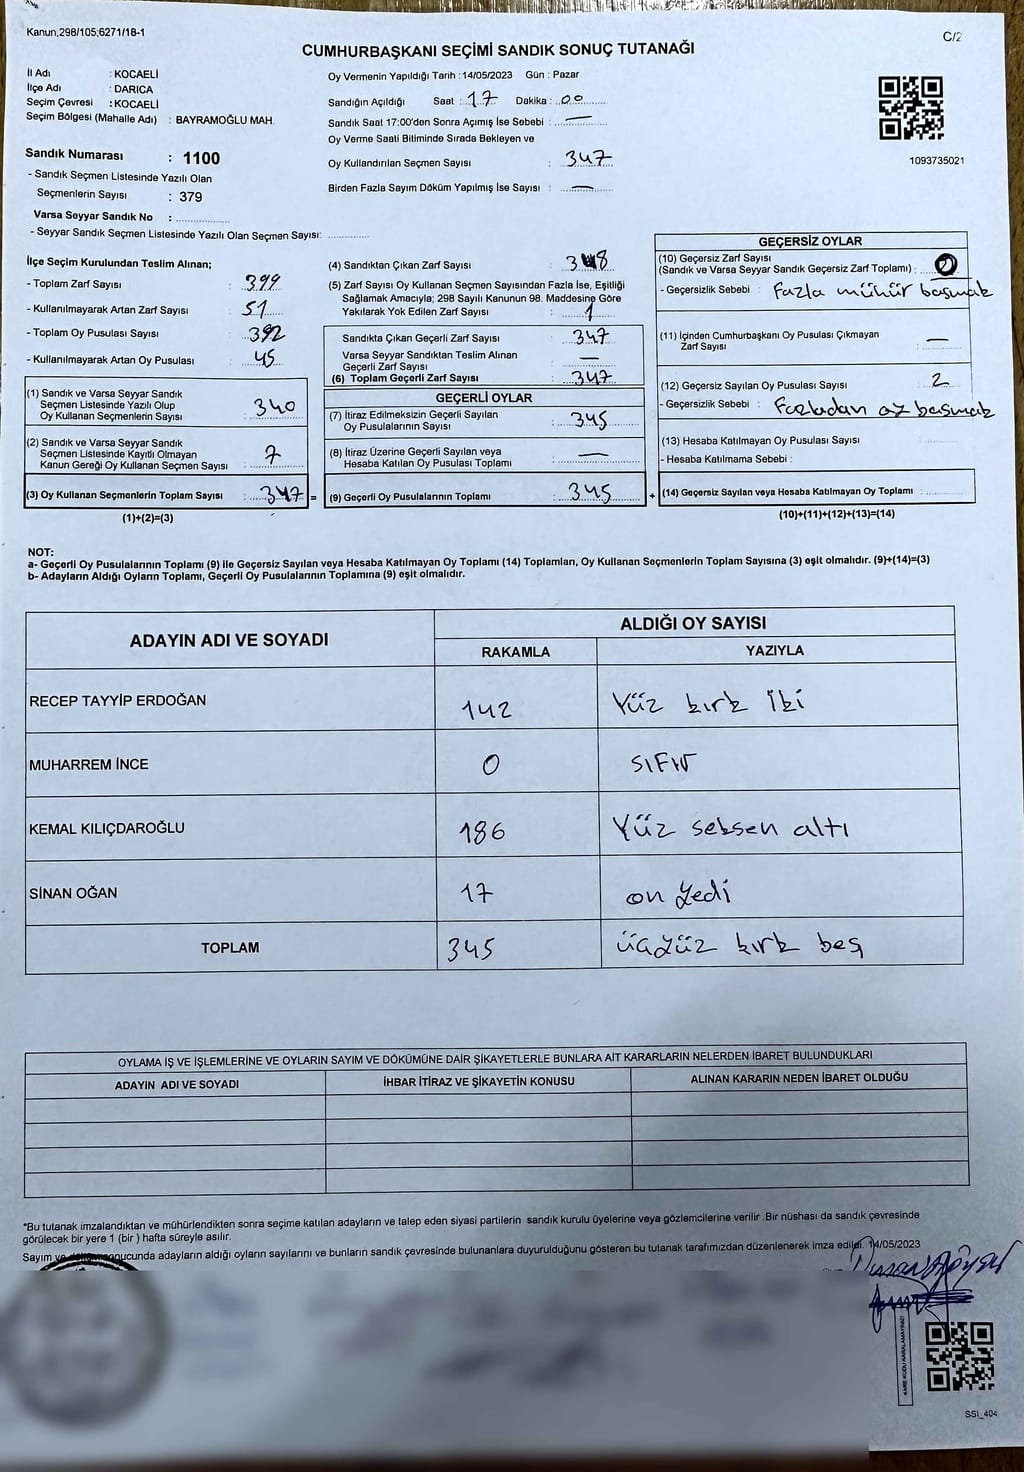 Kanun,298/105;6271/18-1
C/2
CUMHURBAŞKANI SEÇİMİ SANDIK SONUÇ TUTANAĞI
İl Adı : KOCAELİ
İlçe Adı : DARICA
Seçim Çevresi : KOCAELİ
Seçim Bölgesi (Mahalle Adı) : BAYRAMOĞLU MAH.
Oy Vermenin Yapıldığı Tarih : 14/05/2023 Gün : Pazar
Sandığın Açıldığı Saat : 17 Dakika : 00
Sandık Saat 17:00'den Sonra Açımış İse Sebebi : —
Oy Verme Saati Bitiminde Sırada Bekleyen ve
Oy Kullandırılan Seçmen Sayısı : 347
Birden Fazla Sayım Döküm Yapılmış İse Sayısı : —
1093735021
Sandık Numarası : 1100
- Sandık Seçmen Listesinde Yazılı Olan
Seçmenlerin Sayısı : 379
Varsa Seyyar Sandık No :
- Seyyar Sandık Seçmen Listesinde Yazılı Olan Seçmen Sayısı:
İlçe Seçim Kurulundan Teslim Alınan;
- Toplam Zarf Sayısı : 399
- Kullanılmayarak Artan Zarf Sayısı : 51
- Toplam Oy Pusulası Sayısı : 392
- Kullanılmayarak Artan Oy Pusulası : 45
(1) Sandık ve Varsa Seyyar Sandık
Seçmen Listesinde Yazılı Olup
Oy Kullanan Seçmenlerin Sayısı : 340
(2) Sandık ve Varsa Seyyar Sandık
Seçmen Listesinde Kayıtlı Olmayan
Kanun Gereği Oy Kullanan Seçmen Sayısı : 7
(3) Oy Kullanan Seçmenlerin Toplam Sayısı : 347 =
(1)+(2)=(3)
(4) Sandıktan Çıkan Zarf Sayısı : 348
(5) Zarf Sayısı Oy Kullanan Seçmen Sayısından Fazla İse, Eşitliği
Sağlamak Amacıyla; 298 Sayılı Kanunun 98. Maddesine Göre
Yakılarak Yok Edilen Zarf Sayısı : 1
Sandıkta Çıkan Geçerli Zarf Sayısı : 347
Varsa Seyyar Sandıktan Teslim Alınan
Geçerli Zarf Sayısı : —
(6) Toplam Geçerli Zarf Sayısı : 347
GEÇERLİ OYLAR
(7) İtiraz Edilmeksizin Geçerli Sayılan
Oy Pusulalarının Sayısı : 345
(8) İtiraz Üzerine Geçerli Sayılan veya
Hesaba Katılan Oy Pusulası Toplamı : —
(9) Geçerli Oy Pusulalarının Toplamı : 345 +
GEÇERSİZ OYLAR
(10) Geçersiz Zarf Sayısı
(Sandık ve Varsa Seyyar Sandık Geçersiz Zarf Toplamı) :
- Geçersizlik Sebebi : fazla mühür basmak
(11) İçinden Cumhurbaşkanı Oy Pusulası Çıkmayan
Zarf Sayısı : —
(12) Geçersiz Sayılan Oy Pusulası Sayısı : 2
- Geçersizlik Sebebi : fazladan oy basmak
(13) Hesaba Katılmayan Oy Pusulası Sayısı
- Hesaba Katılmama Sebebi :
(14) Geçersiz Sayılan veya Hesaba Katılmayan Oy Toplamı :
(10)+(11)+(12)+(13)=(14)
NOT:
a- Geçerli Oy Pusulalarının Toplamı (9) ile Geçersiz Sayılan veya Hesaba Katılmayan Oy Toplamı (14) Toplamları, Oy Kullanan Seçmenlerin Toplam Sayısına (3) eşit olmalıdır. (9)+(14)=(3)
b- Adayların Aldığı Oyların Toplamı, Geçerli Oy Pusulalarının Toplamına (9) eşit olmalıdır.
ADAYIN ADI VE SOYADI ALDIĞI OY SAYISI
RAKAMLA YAZIYLA
RECEP TAYYİP ERDOĞAN 142 Yüz kırk iki
MUHARREM İNCE 0 SIFIR
KEMAL KILIÇDAROĞLU 186 Yüz seksen altı
SİNAN OĞAN 17 on yedi
TOPLAM 345 üçyüz kırk beş
OYLAMA İŞ VE İŞLEMLERİNE VE OYLARIN SAYIM VE DÖKÜMÜNE DAİR ŞİKAYETLERLE BUNLARA AİT KARARLARIN NELERDEN İBARET BULUNDUKLARI
ADAYIN ADI VE SOYADI İHBAR İTİRAZ VE ŞİKAYETİN KONUSU ALINAN KARARIN NEDEN İBARET OLDUĞU
*Bu tutanak imzalandıktan ve mühürlendikten sonra seçime katılan adayların ve talep eden siyasi partilerin sandık kurulu üyelerine veya gözlemcilerine verilir .Bir nüshası da sandık çevresinde
görülecek bir yere 1 (bir ) hafta süreyle asılır.
Sayım ve sonucunda adayların aldığı oyların sayılarını ve bunların sandık çevresinde bulunanlara duyurulduğunu gösteren bu tutanak tarafımızdan düzenlenerek imza edildi. 14/05/2023
KARE KODU KARALAMAYINIZ!
SSI_404